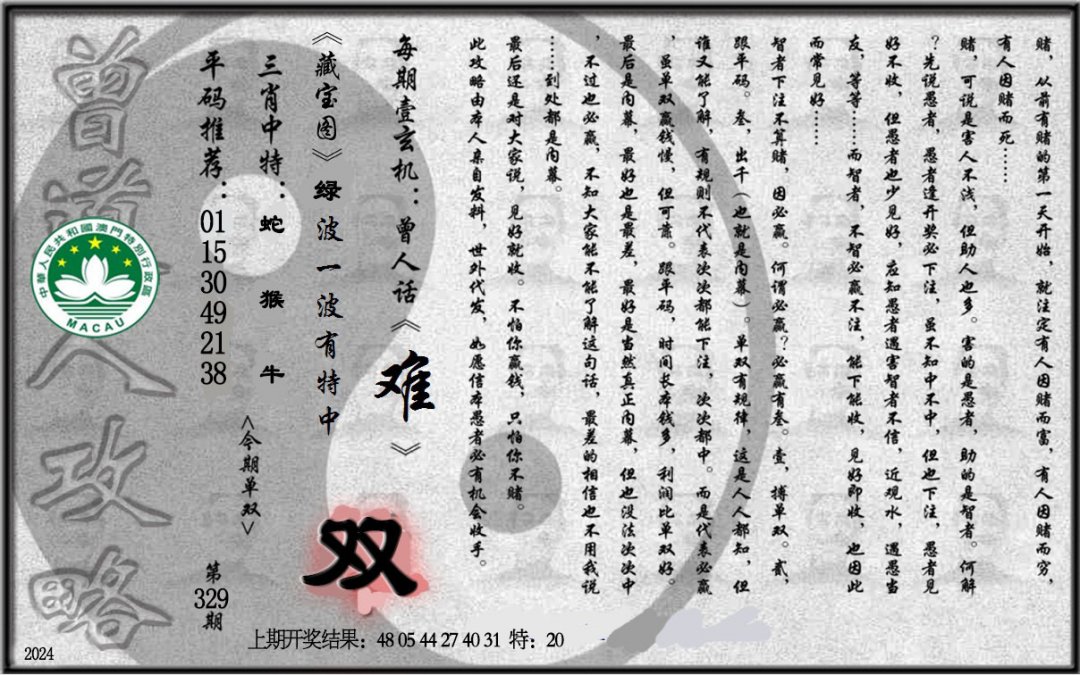 赌，从前有赌的第一天开始，就注定有人因赌而富，有人因赌而穷，
有人因赌而死……
赌，可说是害人不浅，但助人也多。害的是愚者，助的是智者。何解
？先说愚者，愚者逢开奖必下注，虽不知中不中，但也下注，愚者见
好不收，但愚者也少见好，应知愚者遇害智者不信，近观水，遇愚当
友，等等……而智者，不智必赢不注，能下能收，见好即收，也因此
而常见好……
智者下注不算赌，因必赢。何谓必赢？必赢有叁。壹，搏单双。贰，
跟平码。叁，出千（也就是内幕）。单双有规律，这是人人都知，但
谁又能了解，有规则不代表次次都能下注，次次都中。而是代表必赢
，虽单双赢钱慢，但可靠。跟平码，时间长本钱多，利润比单双好。
最后是内幕，最好也是最差，最好是当然真正内幕，但也没法次次中
，不过也必赢，不知大家能不能了解这句话，最差的相信也不用我说
……到处都是内幕。
最后还是对大家说，见好就收。不怕你赢钱，只怕你不赌。
此攻略由本人亲自发料，世外代发，如愿信本愚者必有机会收手。
每期壹玄机：曾人话《难》
《藏宝图》绿波一波有特中
双
三肖中特：蛇 猴 牛
<今期单双>
平码推荐：01 15 30 49 21 38
第329期
曾道人攻略
中華人民共和國澳門特別行政區
MACAU
上期开奖结果：48 05 44 27 40 31 特：20
2024